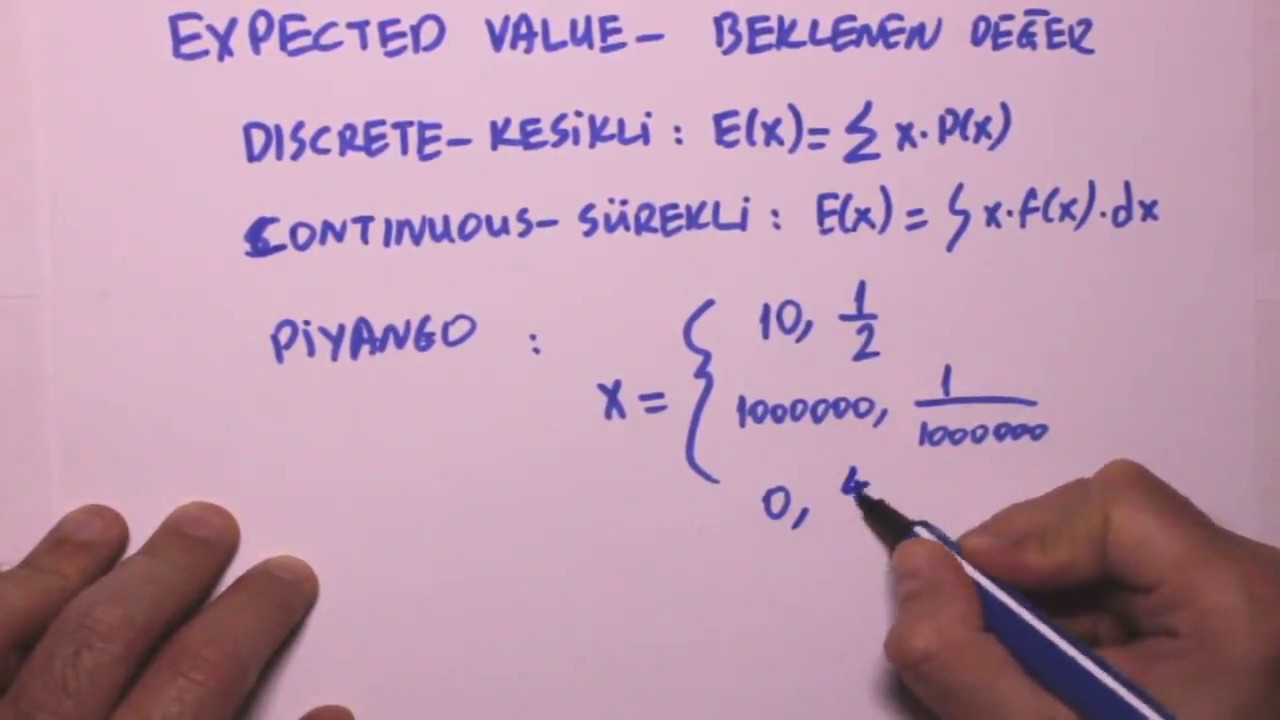 EXPECTED VALUE- BEKLENEN DEĞER
DISCRETE- KESİKLİ : E(x)= Σ x·P(x)
CONTINUOUS- SÜREKLİ : E(x) = ∫ x·f(x)·dx
PİYANGO :
x = { 10, 1/2
1000000, 1/1000000
0, 4